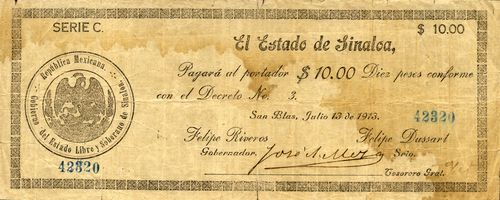 SERIE C.
$ 10.00
El Estado de Sinaloa,
República Mexicana
Gobierno del Estado Libre y Soberano de Sinaloa
Pagará al portador $ 10.00 Diez pesos conforme
con el Decreto No. 3.
San Blas, Julio 13 de 1913.
42320
Felipe Riveros
Felipe Dussart
Gobernador,
Srio.
42320
Tesorero Gral.